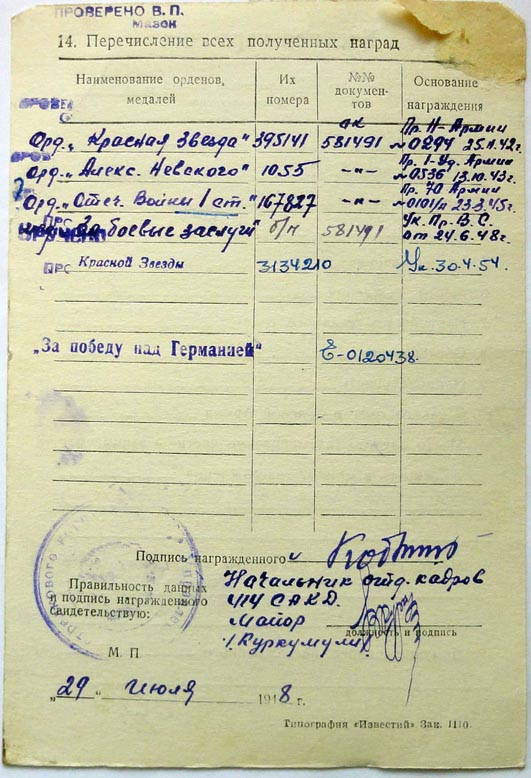 ПРОВЕРЕНО В. П.
Мазок
14. Перечисление всех полученных наград
Наименование орденов, медалей
Их номера
№№ документов
Основание награждения
Орд. „Красная Звезда" 395141 ок 581491 Пр. 11-Армии №0297 25.11.42г.
Орд. „Алекс. Невского" 1055 —"— Пр. 1-Уд. Армии №0536 13.10.43г.
Орд. „Отеч. Войны 1 ст." 167827 —"— Пр. 70 Армии №0101/н 23.3.45г.
За боевые заслуги" б/н 581491 Ук. Пр. В. С. от 24.6.48г.
Красной Звезды 3134210 Ук. 30.4.54.
„За победу над Германией" Е-0120438.
Подпись награжденного
Правильность данных и подпись награжденного свидетельствую:
Начальник отд. кадров
414 САКД.
Майор
/Куркумули/
должность и подпись
М. П.
„29" Июля 1948 г.
Типография «Известий» Зак. 1110.